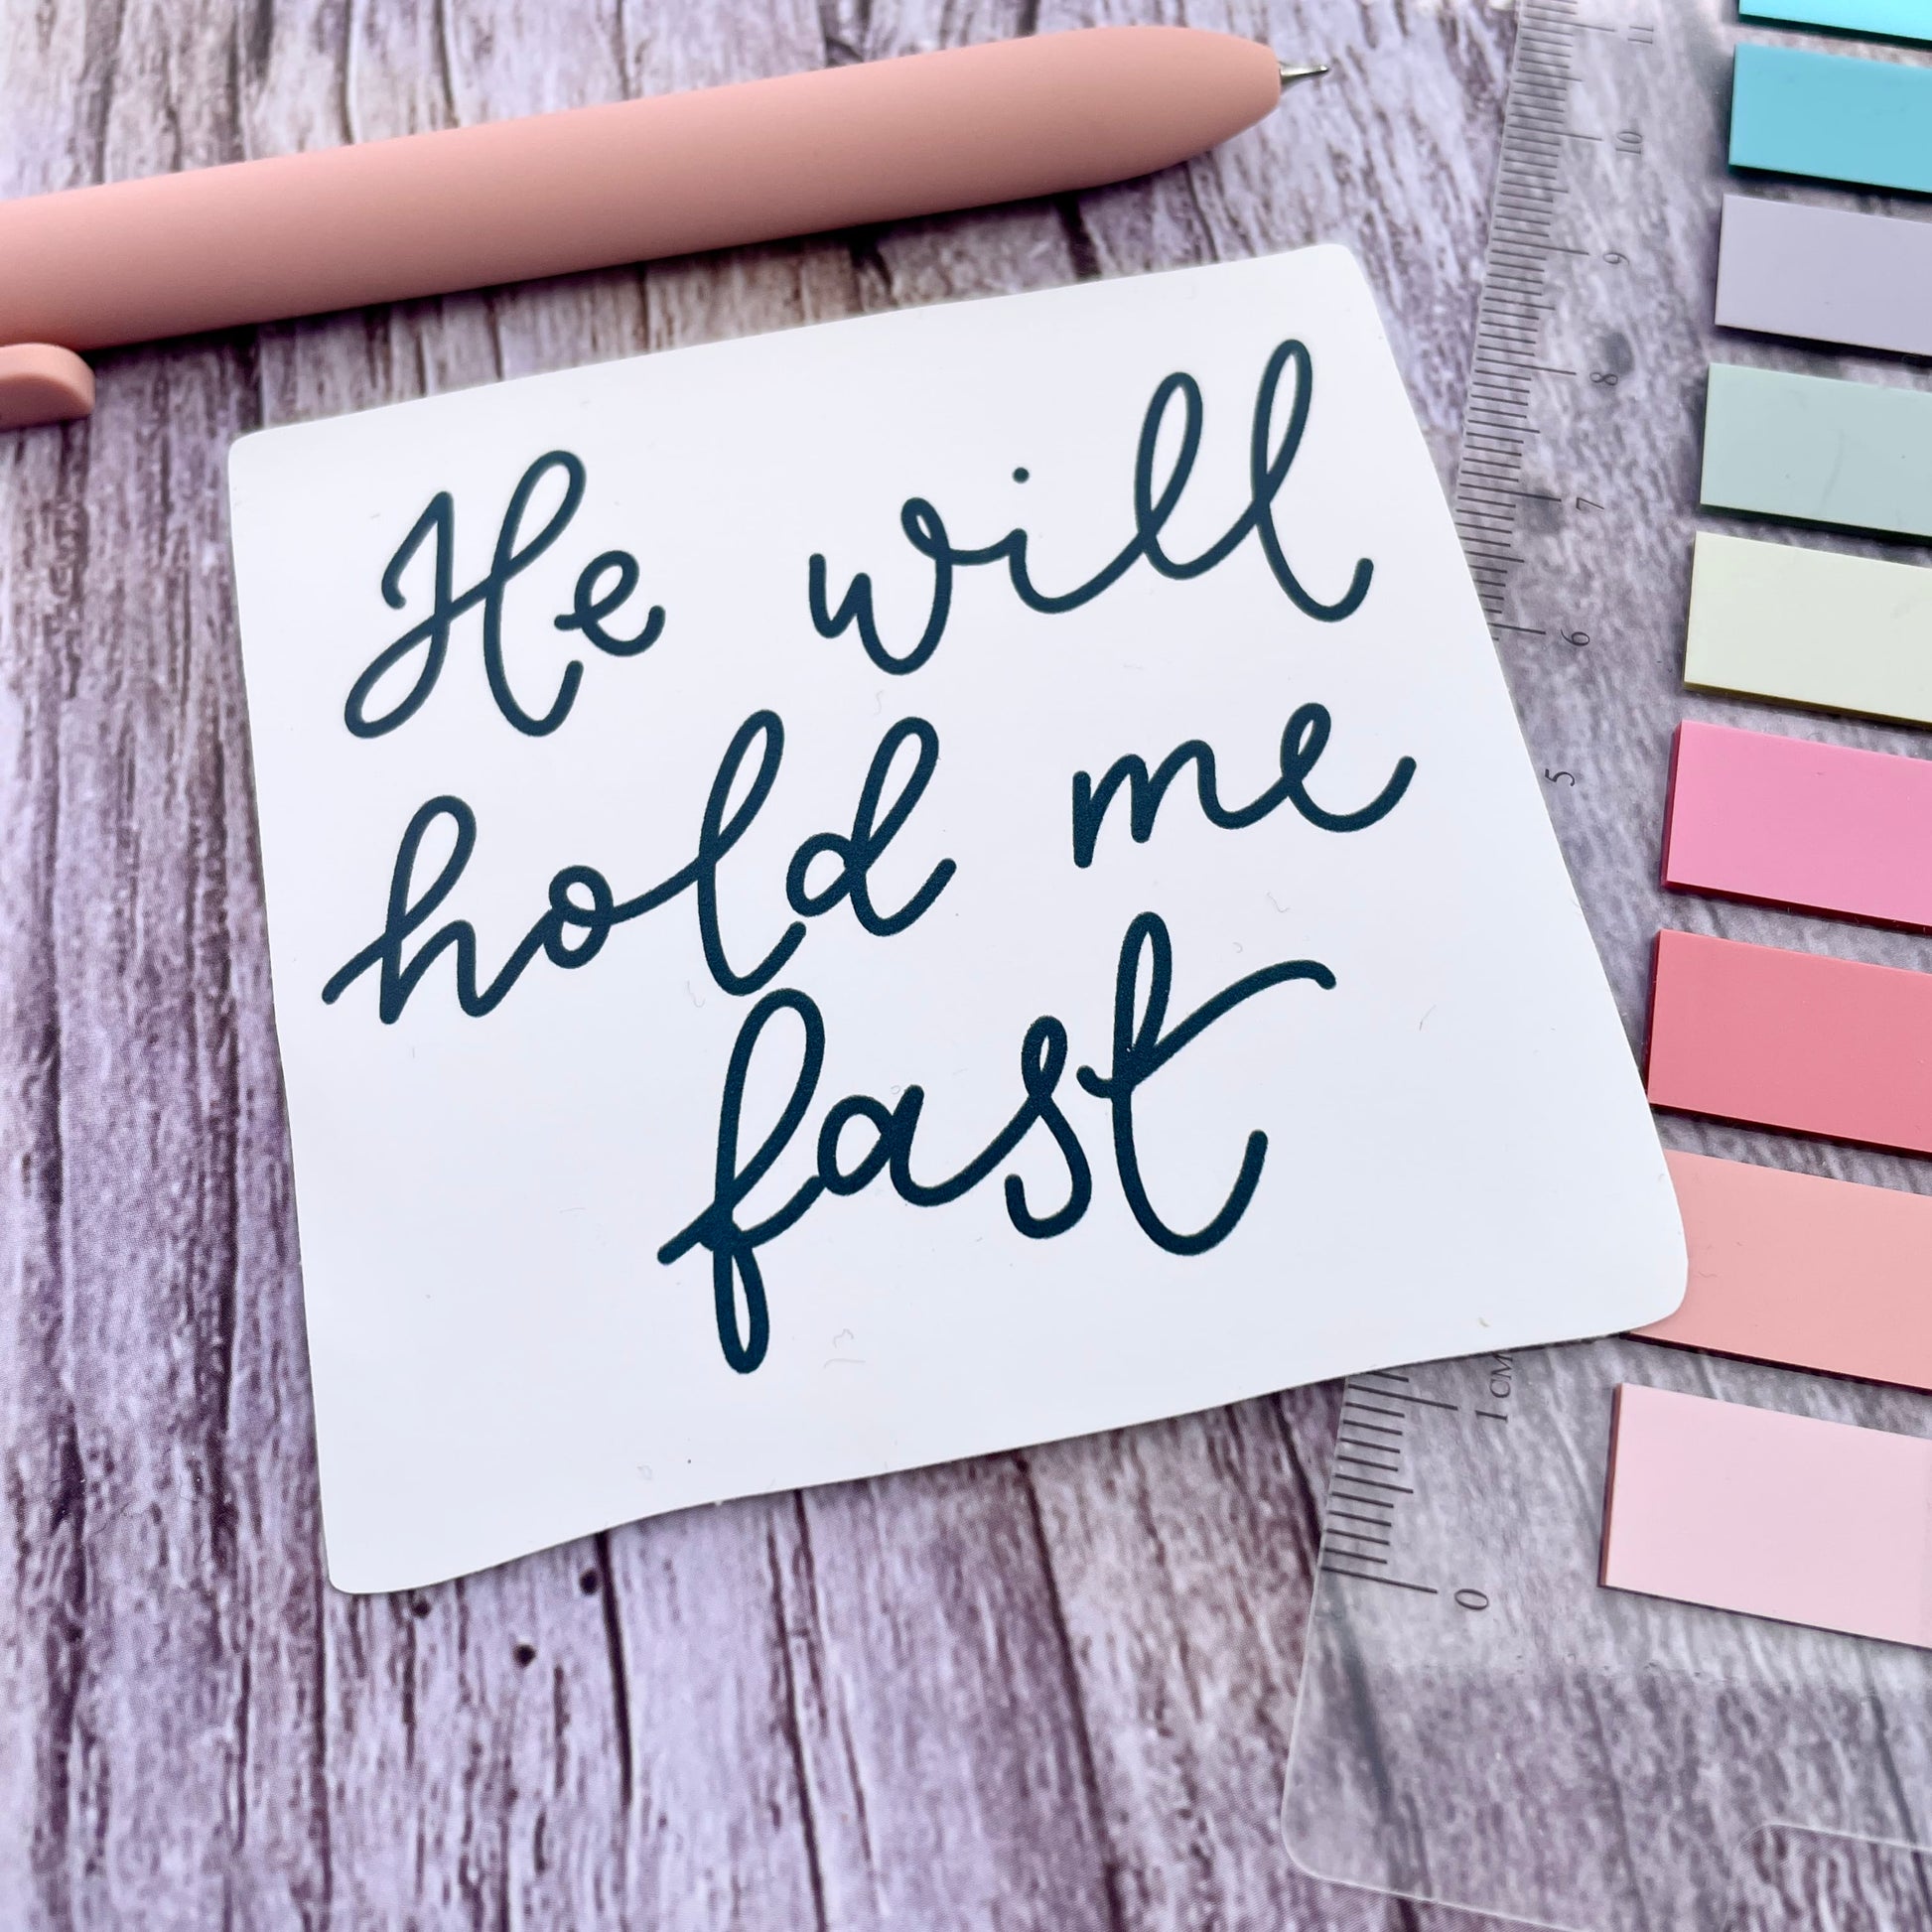 He will
hold me
fast
11
10
9
8
7
6
5
1 CM
0